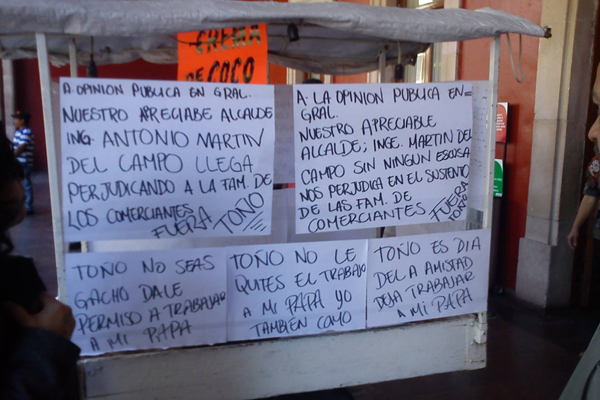 CREMA
DE COCO
A OPINION PUBLICA EN GRAL.
NUESTRO APRECIABE ALCALDE
ING. ANTONIO MARTIN
DEL CAMPO LLEGA
PERJUDICANDO A LA FAM. DE
LOS COMERCIANTES
FUERA TOÑO
A. LA OPINION PUBLICA EN=
GRAL.
NUESTRO APRECIABLE
ALCALDE; INGE. MARTIN DEL
CAMPO SIN NINGUN ESCUSA
NOS PERJUDICA EN EL SUSTENTO
DE LAS FAM. DE
COMERCIANTES
FUERA
TOÑO
TOÑO NO SEAS
GACHO DALE
PERMISO A TRABAJAR
A MI PAPA
TOÑO NO LE
QUITES EL TRABAJO
A MI PAPA YO
TAMBIEN COMO
TOÑO ES DIA
DEL A AMISTAD
DEJA TRABAJAR
A MI PAPA